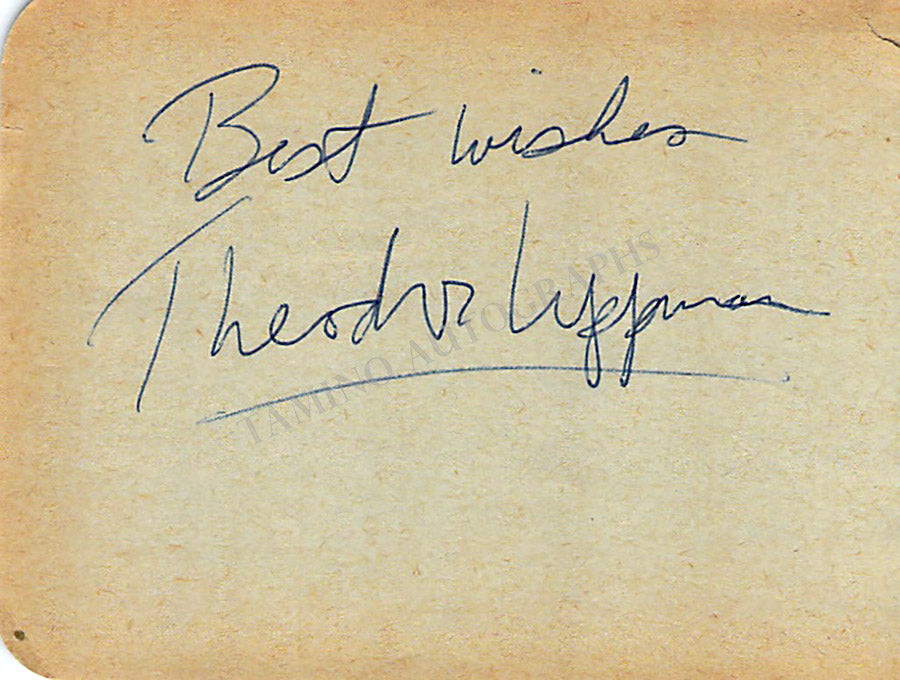 Best wishes
Theodor Uppman
TAMINO AUTOGRAPHS